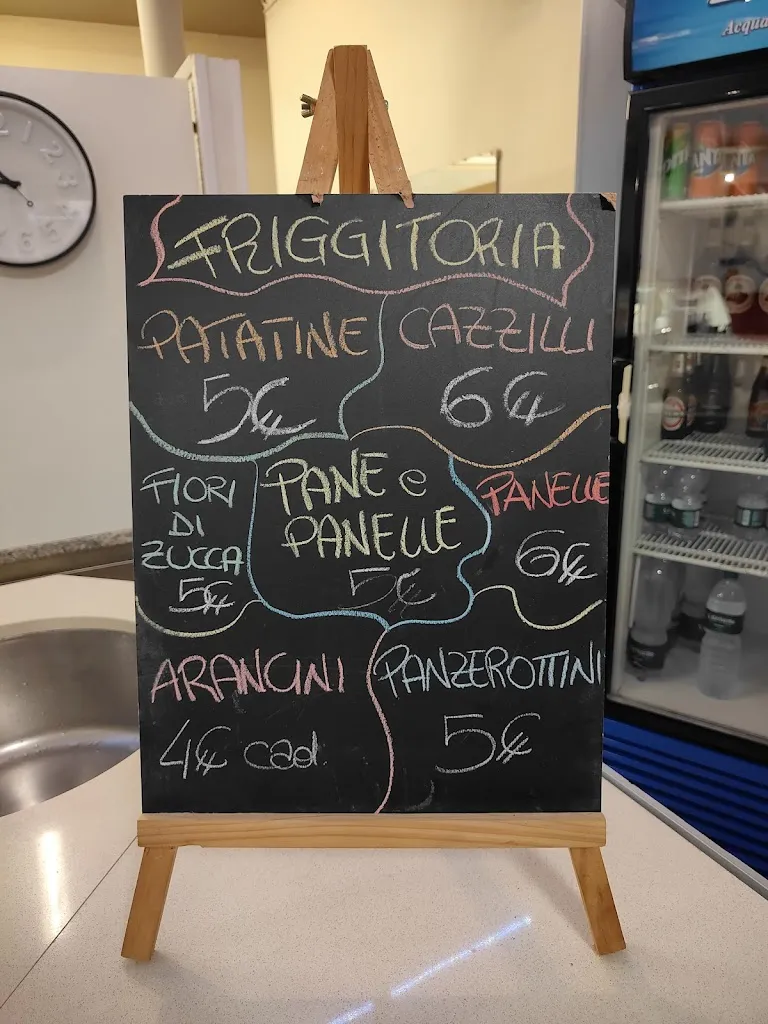 Acqua
FRIGGITORIA
PATATINE
5€
CAZZILLI
6€
FIORI
DI
ZUCCA
5€
PANE e
PANELLE
5€
PANELLE
6€
ARANCINI
4€ cad.
PANZEROTTINI
5€